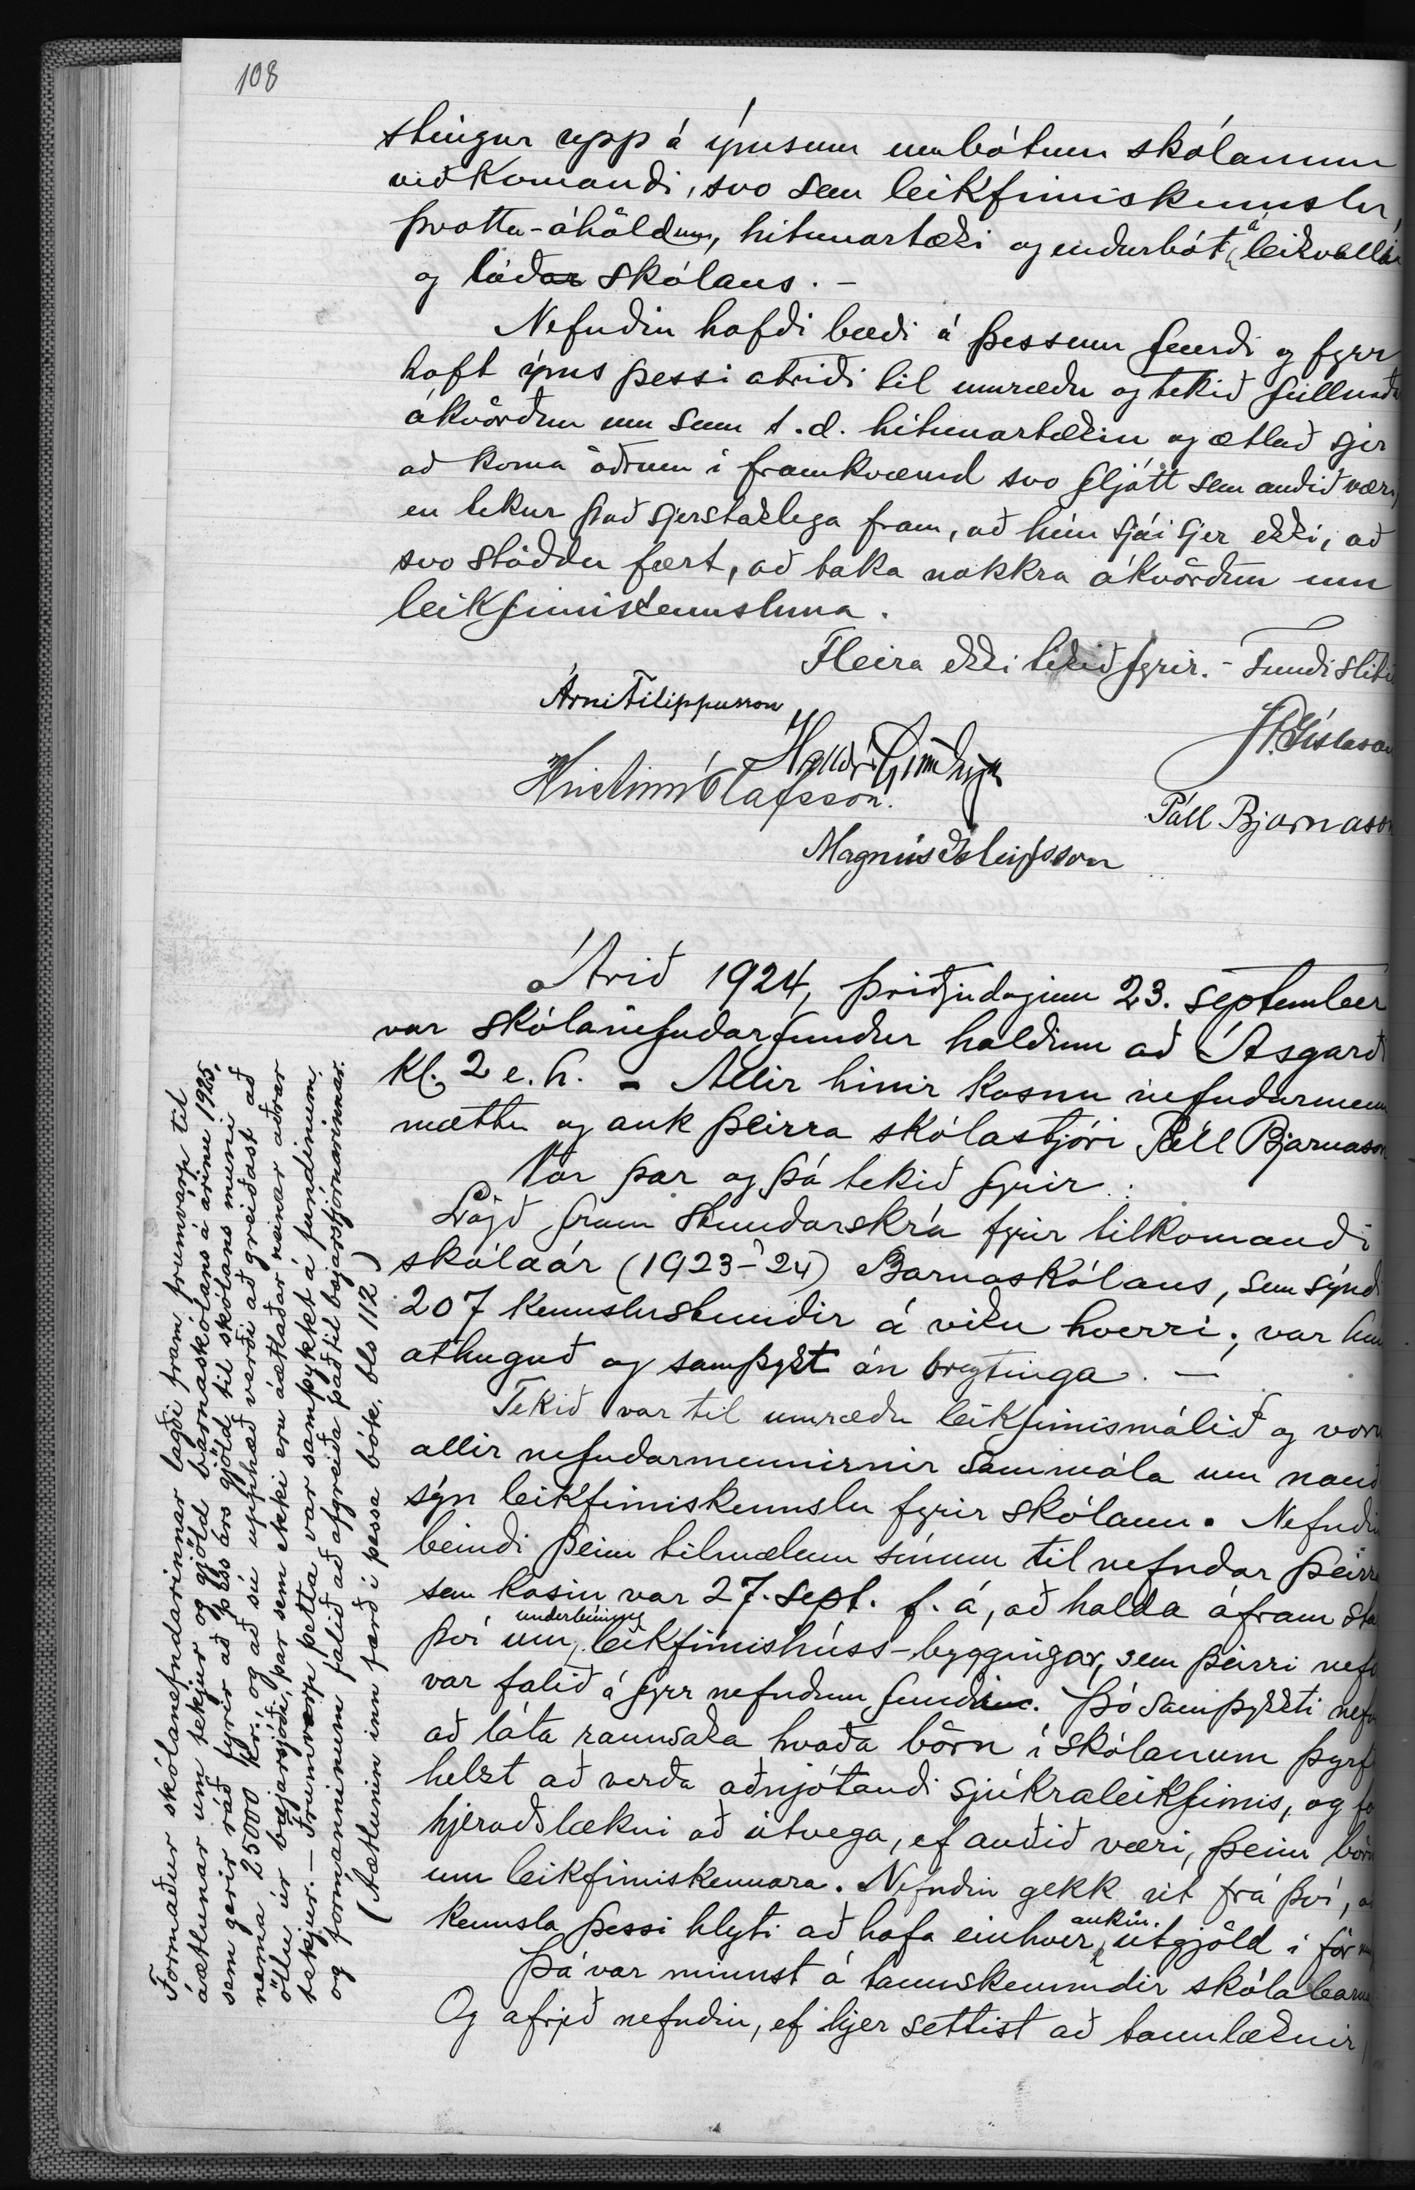 108
stingur upp á ýmsum umbótum skólanum
viðkomandi, svo sem leikfimiskennslu,
þvotta-áhöldum, hitunartæki og endurbót á leikvelli
og lóðar skólans. -
Nefndin hafði bæði á þessum fundi og fyrr
haft ýms þessi atriði til umræðu og tekið fullnaðar
ákvörðun um sum t.d. hitunartækin og ætlað sjer
að koma öðrum í framkvæmd svo fljótt sem auðið væri,
en tekur það sjerstaklega fram, að hún sjái sjer ekki, að
svo stöddu fært, að taka nokkra ákvörðun um
leikfimiskennsluna.
Fleira ekki tekið fyrir. - Fundi slitið
Árni Filippusson
J.P. Gíslason
Kristinn Ólafsson.
Páll Bjarnason
Magnús Ísleifsson
Árið 1924, þriðjudaginn 23. september
var skólanefndarfundur haldinn að Ásgarði
Kl. 2 e.h. - Allir hinir kosnu nefndarmenn
mættu og auk þeirra skólastjóri Páll Bjarnason
Var þar og þá tekið fyrir:
Lögð fram stundarskrá fyrir tilkomandi
skólaár (1923-'24) Barnaskólans, sem sýndi
207 kennslustundir á viku hverri; var hún
athuguð og samþykt án breytinga. -
Tekið var til umræðu leikfimismálið og voru
allir nefndarmennirnir sammála um nauð
sýn leikfimiskennslu fyrir skólann. Nefndin
beindi þeim tilmælum sínum til nefndar þeirrar
sem kosin var 27. sept. f. á, að halda áfram
því um, underbúning leikfimishúss-byggingar, sem þeirri nefnd
var falið á fyrr nefndum fundi. Þó samþykkti nefnd
að láta rannsaka hvaða börn í skólanum þyrftu
helzt að verða aðnjótandi sjúkraleikfimis, og
hjeraðslækni að útvega, ef auðið væri, þeim börn
um leikfimiskennara. Nefndin gekk út frá því, að
kennsla þessi hlyti að hafa einhver aukin útgjöld í för
Þá var minnst á tannskemmdir skólabarna
Og afrjeð nefndin, ef hjer settist að tannlæknir,
Formaður skólanefndarinnar lagði fram frumvarp til
áætlunar um tekjur og gjöld barnaskólans á árinu 1925,
sem gerir ráð fyrir að þess árs gjöld til skólans muni
nema 25000 kr.; og að sú upphæð verði að greiðast að
öllu úr bæjarsjóði, þar sem ekki eru áætlaðar neinar aðrar
tekjur. - Frumvarp þetta var samþykkt á fundinum
og formanninum falið að afgreiða það til bæjarstjórnarinnar.
(Áætlunin inn færð í þessa bók, bls 112)